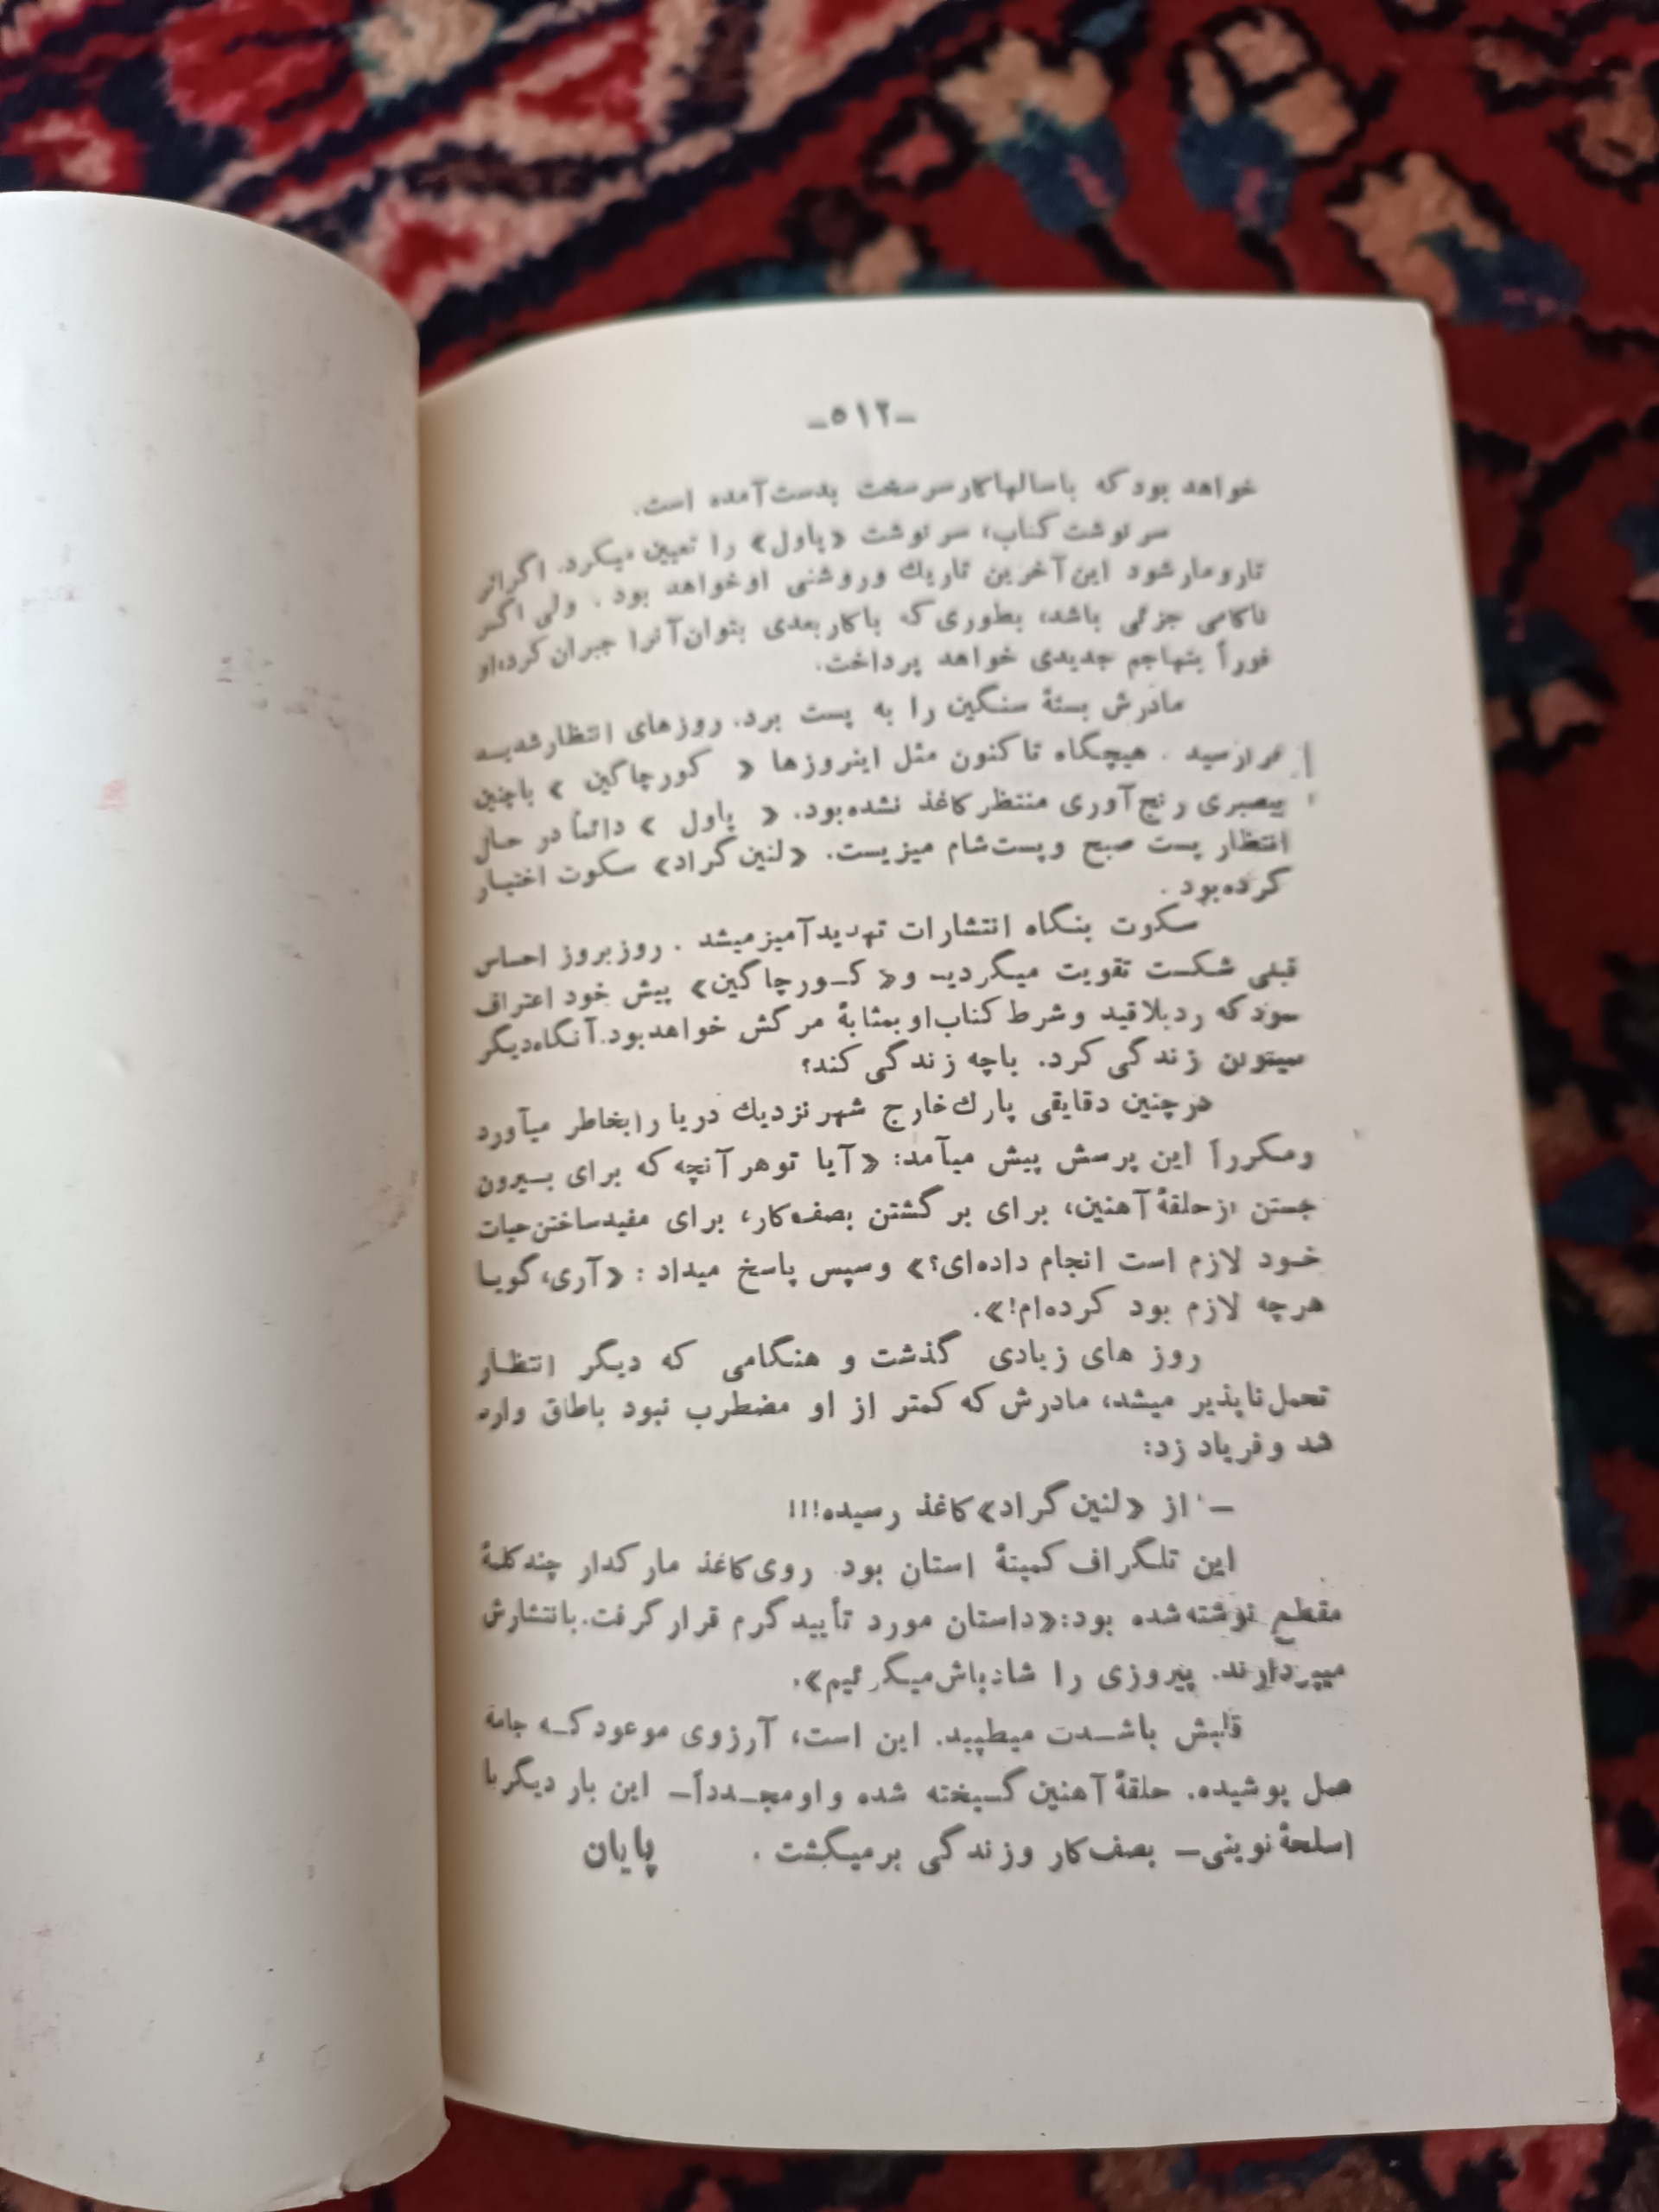 -۵۱۲-
خواهد بود که باسالها کار سرسخت بدست آمده است.
سرنوشت کتاب، سرنوشت «پاول» را تعیین میکرد. اگر
تارومار شود این آخرین تاریك وروشنی اوخواهد بود . ولی اگر
ناکامی جزئی باشد، بطوری که باکار بعدی بتوان آنرا جبران کرد، او
فوراً بتهاجم جدیدی خواهد پرداخت.
مادرش بستۀ سنگین را به پست برد. روزهای انتظار شدید
فرارسید . هیچگاه تا کنون مثل اینروزها « کورچاگین » باچنین
بیصبری رنج آوری منتظر کاغذ نشده بود. « پاول » دائماً در حال
انتظار پست صبح وپست شام میزیست. «لنین گراد» سکوت اختیار
کرده بود .
سکوت بنگاه انتشارات تهدید آمیز میشد . روز بروز احساس
قبلی شکست تقویت میگردید و« کورچاگین» پیش خود اعتراف
که رد بلاقید وشرط کتاب او بمثابۀ مرگش خواهد بود. آنگاه دیگر
زندگی کرد. باچه زندگی کند؟
درچنین دقایقی پارك خارج شهر نزدیك دریا را بخاطر میآورد
ومکرراً این پرسش پیش میآمد: «آیا تو هر آنچه که برای بیرون
جستن از حلقۀ آهنین، برای برگشتن بصف کار، برای مفید ساختن حیات
خود لازم است انجام داده‌ای؟» وسپس پاسخ میداد : «آری، گویا
هرچه لازم بود کرده‌ام!».
روز های زیادی گذشت و هنگامی که دیگر انتظار
تحمل ناپذیر میشد، مادرش که کمتر از او مضطرب نبود باطاق وارد
شد وفریاد زد:
- از «لنین گراد» کاغذ رسیده!!!
این تلگراف کمیتۀ استان بود. روی کاغذ مارکدار چند کلمۀ
مقطع نوشته شده بود: «داستان مورد تأیید گرم قرار گرفت. بانتشارش
میپردازند. پیروزی را شادباش میگوئیم».
قلبش باشدت میطپید. این است، آرزوی موعود که جامۀ
عمل پوشیده. حلقۀ آهنین گسیخته شده و او مجدداً- این بار دیگر با
اسلحۀ نوینی- بصف کار وزندگی برمیگشت . پایان